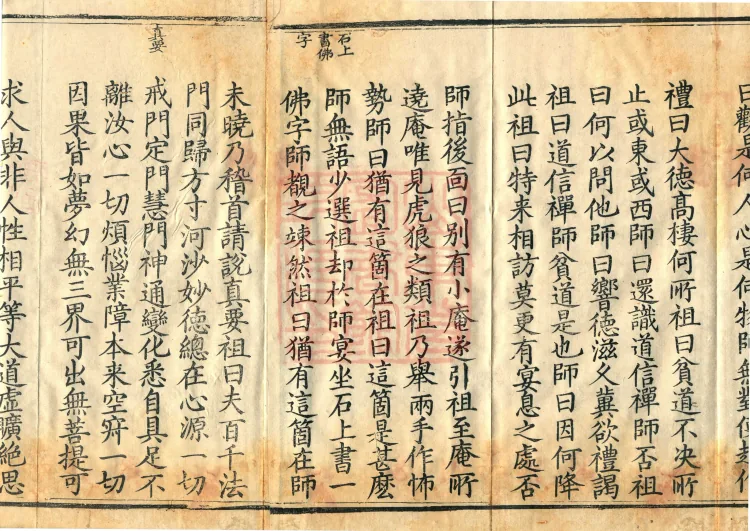 曰觀是何人心是何物師無對便起作
禮曰大德髙棲何所祖曰貧道不决所
止或東或西師曰還識道信禪師否祖
曰何以問他師曰嚮德滋久冀欲禮謁
祖曰道信禪師貧道是也師曰因何降
此祖曰特来相訪莫更有宴息之處否
師指後面曰别有小庵遂引祖至庵所
遶庵唯見虎狼之類祖乃舉兩手作怖
勢師曰猶有這箇在祖曰這箇是甚麽
師無語少選祖却於師宴坐石上書一
佛字師覩之竦然祖曰猶有這箇在師
石上
書佛
字
未曉乃稽首請說真要祖曰夫百千法
門同歸方寸河沙妙德總在心源一切
戒門定門慧門神通變化悉自具足不
離汝心一切煩惱業障本来空寂一切
因果皆如夢幻無三界可出無菩提可
真要
求人與非人性相平等大道虛曠絕思